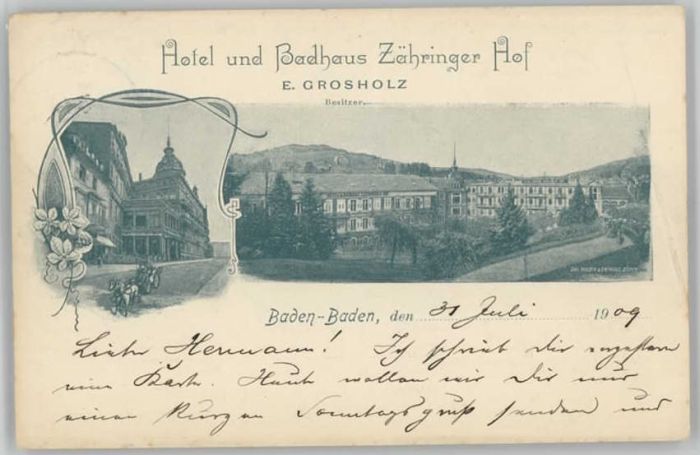 Hotel und Badhaus Zähringer Hof
E. GROSHOLZ
Besitzer.
Baden-Baden, den 31 Juli 1909
Lieber Hermann! Ich schrieb Dir
eine Karte. Heute wollen wir Dir nur
einen kurzen Sonntagsgruß senden und